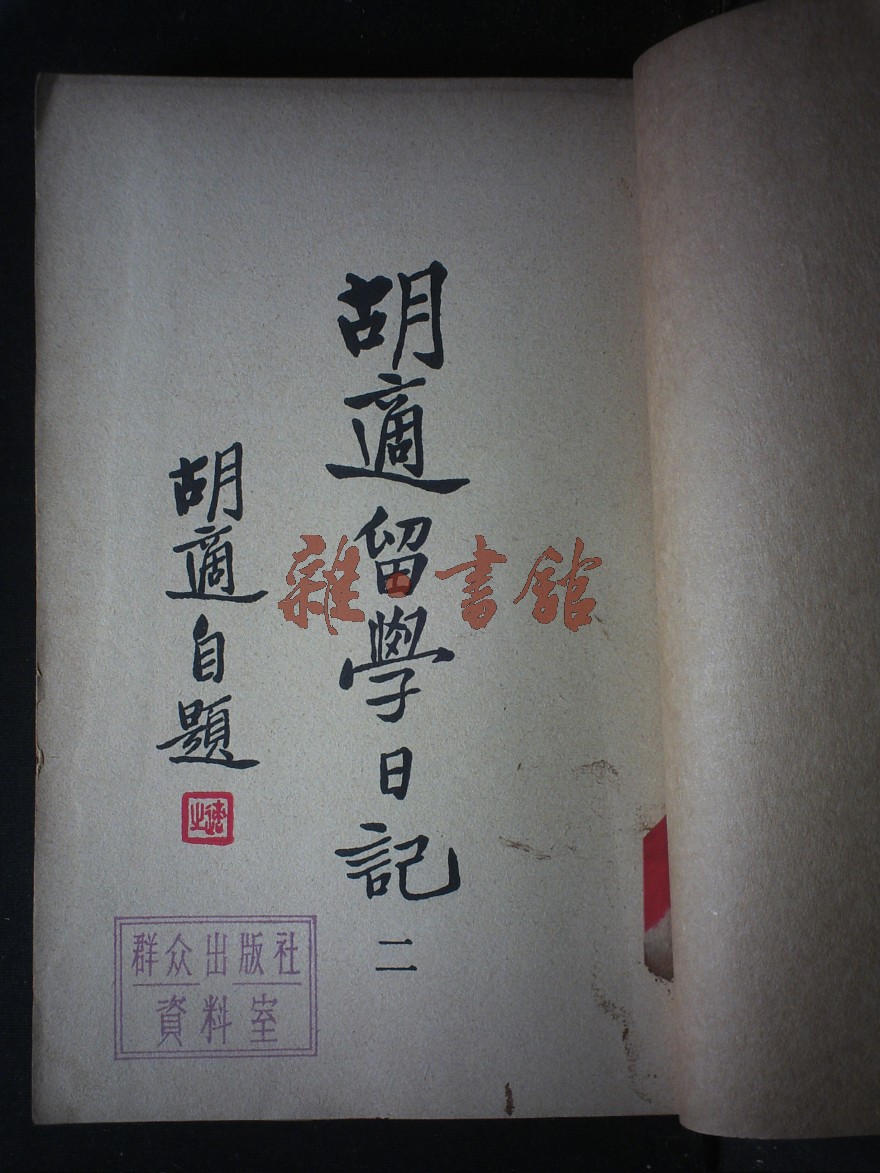 胡適留學日記 二
胡適自題
適之
雜·書館
群众出版社
資料室